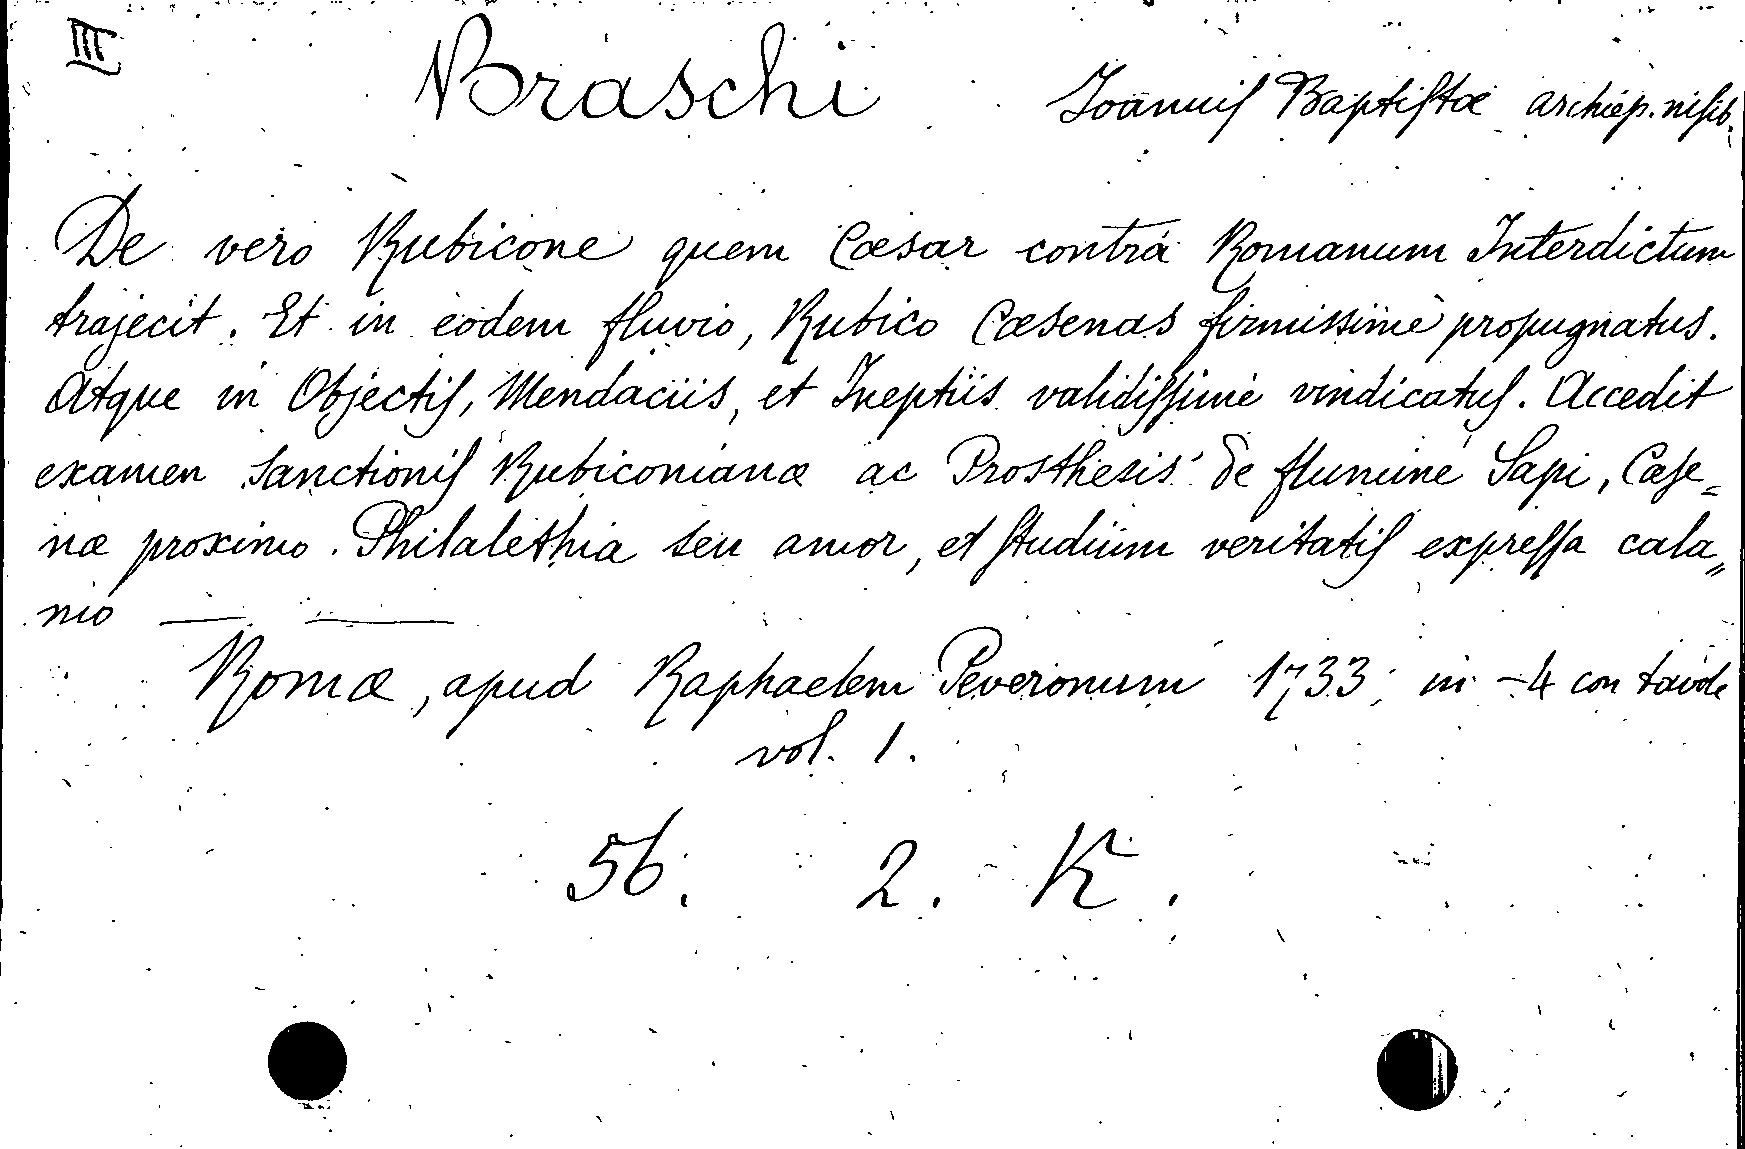 III
Braschi Joannis Baptistæ archiep. nisib.
De vero Rubicone quem Cæsar contrà Romanum Interdictum
trajecit. Et in eodem fluvio, Rubico Cæsenas firmissimè propugnatus.
Atque in Objectis, Mendaciis, et Ineptiis validissimè vindicatus. Accedit
examen Sanctionis Rubiconianæ ac Prosthesis de flumine Sapi, Cæse=
næ proximo. Philalethia seu amor, et studium veritatis expressa cala„
mo
Romæ, apud Raphaelem Peveronum 1733; in-4 con tavole
vol. 1.
56. 2. K.